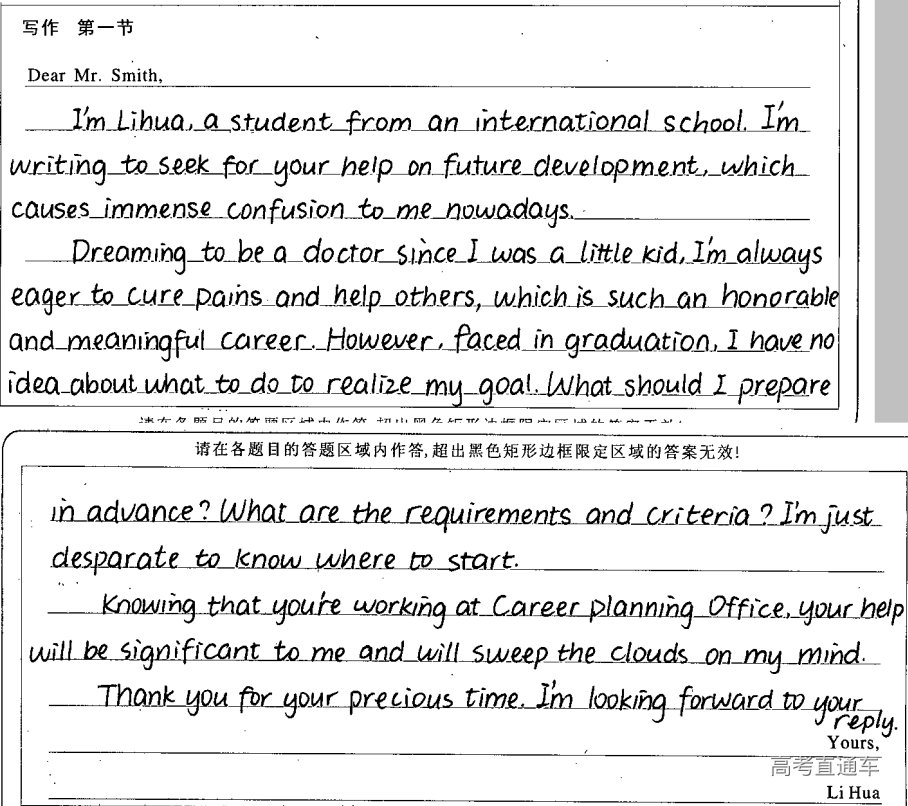 写作 第一节
Dear Mr. Smith,
I'm Lihua, a student from an international school. I'm
writing to seek for your help on future development, which
causes immense confusion to me nowadays.
Dreaming to be a doctor since I was a little kid, I'm always
eager to cure pains and help others, which is such an honorable
and meaningful career. However, faced in graduation, I have no
idea about what to do to realize my goal. What should I prepare
请在各题目的答题区域内作答,超出黑色矩形边框限定区域的答案无效!
in advance? What are the requirements and criteria? I'm just
desparate to know where to start.
Knowing that you're working at Career planning Office, your help
will be significant to me and will sweep the clouds on my mind.
Thank you for your precious time. I'm looking forward to your
reply.
Yours,
高考直通车
Li Hua